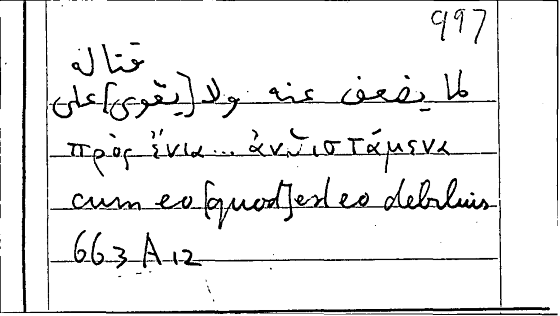 997
قتاله
لما يضعف عنه ولا [يقوى] على
πρὸς ἔνια... ἀνθιστάμενα
cum eo [quod] est eo debilius
663 A 12